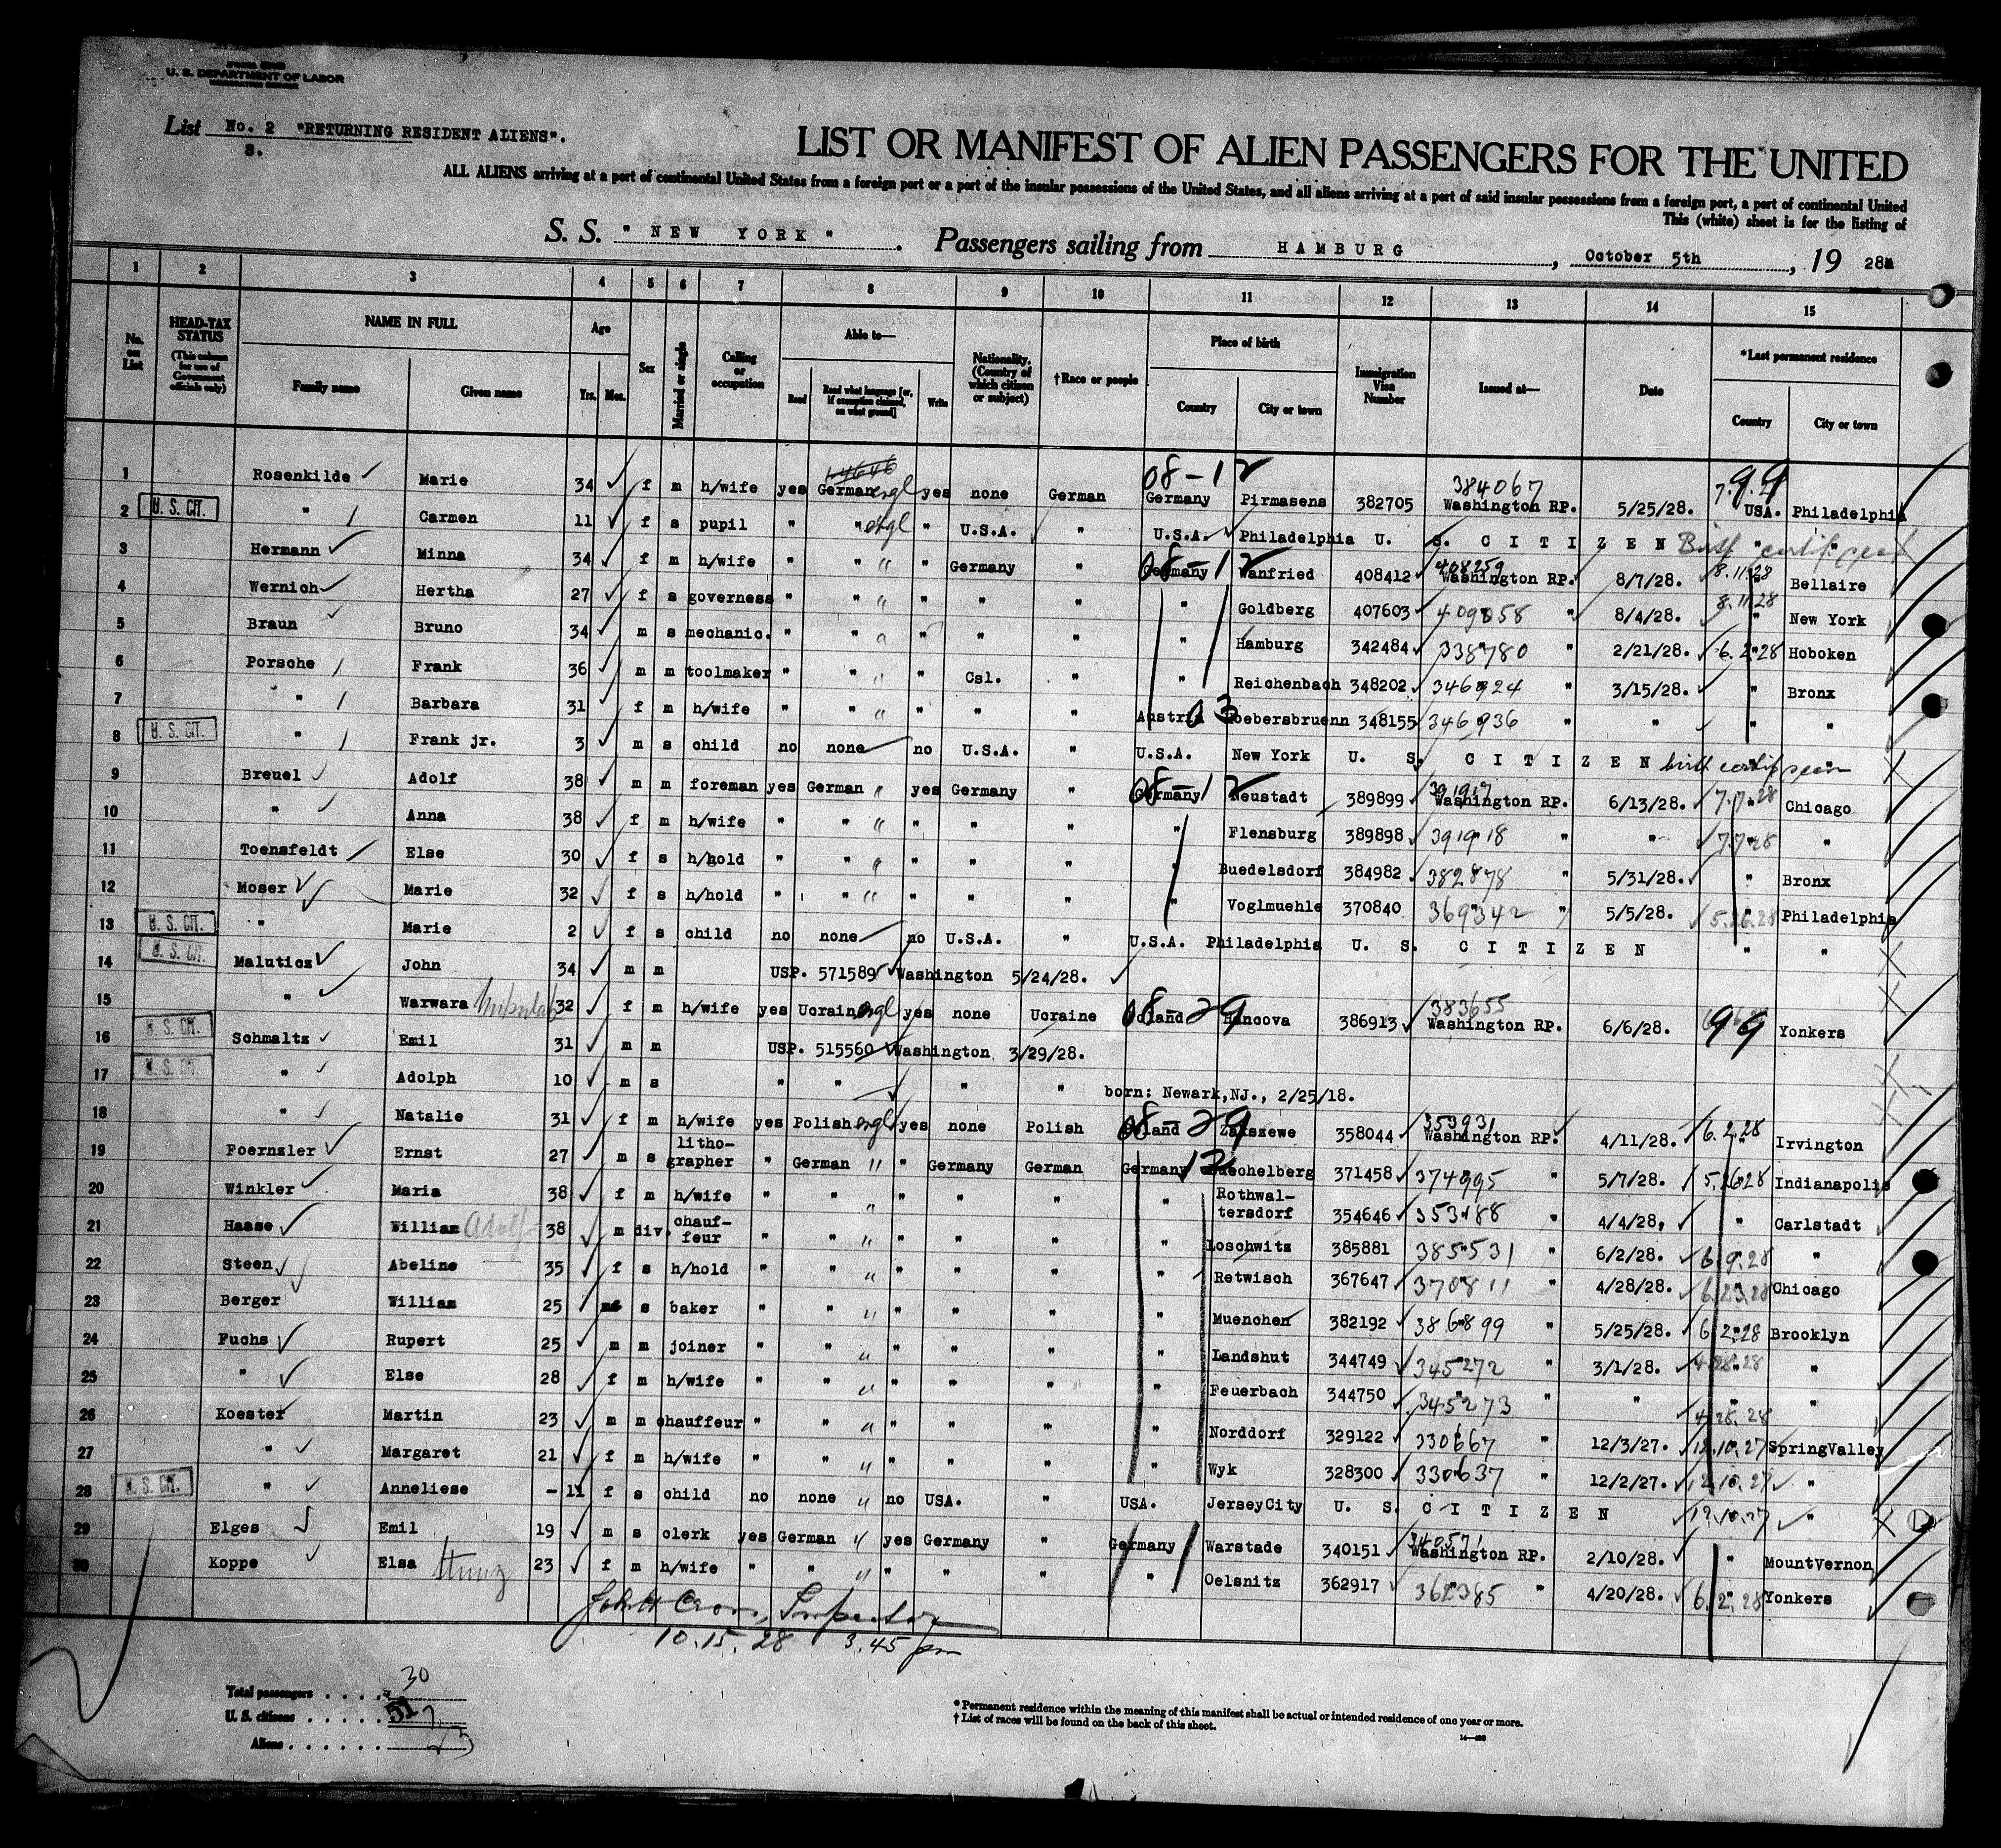 U. S. DEPARTMENT OF LABOR
List No. 2 "RETURNING RESIDENT ALIENS".
8.
LIST OR MANIFEST OF ALIEN PASSENGERS FOR THE UNITED
ALL ALIENS arriving at a port of continental United States from a foreign port or a port of the insular possessions of the United States, and all aliens arriving at a port of said insular possessions from a foreign port, a port of continental United
This (white) sheet is for the listing of
S. S. "NEW YORK". Passengers sailing from HAMBURG, October 5th, 1928
1 2 3 4 5 6 7 8 9 10 11 12 13 14 15
No. on List
HEAD-TAX STATUS (This column for use of Government officials only)
NAME IN FULL Family name Given name
Age Yrs. Mos.
Sex
Married or single
Calling or occupation
Able to— Read Read what language [or, if exemption claimed, on what ground] Write
Nationality. (Country of which citizen or subject)
†Race or people
Place of birth Country City or town
Immigration Visa Number
Issued at—
Date
*Last permanent residence Country City or town
1 Rosenkilde Marie 34 f m h/wife yes German engl yes none German 08-12 Germany Pirmasens 382705 384067 Washington RP. 5/25/28. 99 USA. Philadelphia
2 U. S. CIT. " Carmen 11 f s pupil " " engl " U.S.A. " U.S.A. Philadelphia U. S. CITIZEN Birth certif " "
3 Hermann Minna 34 f m h/wife " " " " Germany " 08-12 Germany Wanfried 408412 408259 Washington RP. 8/7/28. 8.11.28 " Bellaire
4 Wernich Hertha 27 f s governess " " " " " " " Goldberg 407603 409058 " 8/4/28. 8.11.28 " New York
5 Braun Bruno 34 m s mechanic. " " " " " " " Hamburg 342484 338780 " 2/21/28. 6.2.28 " Hoboken
6 Porsche Frank 36 m m toolmaker " " " " Csl. " " Reichenbach 348202 346924 " 3/15/28. " Bronx
7 " Barbara 31 f m h/wife " " " " " " Austria 03 Loebersbruenn 348155 346936 " " " "
8 U. S. CIT. " Frank jr. 3 m s child no none no U.S.A. " U.S.A. New York U. S. CITIZEN birth certif seen
9 Breuel Adolf 38 m m foreman yes German " yes Germany " 08-12 Germany Neustadt 389899 391917 Washington RP. 6/13/28. 7.7.28 " Chicago
10 " Anna 38 f m h/wife " " " " " " " Flensburg 389898 391918 " " 7.7.28 " "
11 Toensfeldt Else 30 f s h/hold " " " " " " " Buedelsdorf 384982 382878 " 5/31/28. " Bronx
12 Moser Marie 32 f s h/hold " " " " " " " Voglmuehle 370840 369342 " 5/5/28. 5.26.28 Philadelphia
13 U. S. CIT. " Marie 2 f s child no none no U.S.A. " U.S.A. Philadelphia U. S. CITIZEN " "
14 U. S. CIT. Maluticz John 34 m m USP. 571589 Washington 5/24/28.
15 " Warwara 32 f m h/wife yes Ucrain engl yes none Ucraine 08-29 Poland Hancova 386913 383655 Washington RP. 6/6/28. 99 Yonkers
16 U. S. CIT. Schmaltz Emil 31 m m USP. 515560 Washington 3/29/28.
17 U. S. CIT. " Adolph 10 m s " " " " born: Newark,NJ., 2/25/18.
18 " Natalie 31 f m h/wife yes Polish engl yes none Polish 08-29 Poland Zakszewe 358044 353931 Washington RP. 4/11/28. 6.2.28 " Irvington
19 Foernzler Ernst 27 m s litho-grapher " German " " Germany German Germany 12 371458 374995 " 5/7/28. 5.26.28 Indianapolis
20 Winkler Maria 38 f m h/wife " " " " " " " Rothwal-tersdorf 354646 353188 " 4/4/28. " Carlstadt
21 Haase William Adolf 38 m div. chauf-feur " " " " " " " Loschwitz 385881 385531 " 6/2/28. 6.9.28 "
22 Steen Abeline 35 f s h/hold " " " " " " " Retwisch 367647 370811 " 4/28/28. 6.23.28 Chicago
23 Berger William 25 m s baker " " " " " " " Muenchen 382192 386899 " 5/25/28. 6.2.28 Brooklyn
24 Fuchs Rupert 25 m m joiner " " " " " " " Landshut 344749 345272 " 3/1/28. 4.28.28 "
25 " Else 28 f m h/wife " " " " " " " Feuerbach 344750 345273 " " 4.28.28 "
26 Koester Martin 23 m m chauffeur " " " " " " " Norddorf 329122 330667 " 12/3/27. 12.10.27 SpringValley
27 " Margaret 21 f m h/wife " " " " " " " Wyk 328300 330637 " 12/2/27. 12.10.27 "
28 U. S. CIT. " Anneliese - 11 f s child no none " no USA. " USA. JerseyCity U. S. CITIZEN 12.10.27 "
29 Elges Emil 19 m s clerk yes German " yes Germany " Germany Warstade 340151 340571 Washington RP. 2/10/28. " MountVernon
30 Koppe Elsa 23 f m h/wife " " " " " " " Oelsnitz 362917 362385 " 4/20/28. 6.2.28 Yonkers
John H Cross, Inspector
10.15.28 3.45 pm
Total passengers . . . . 30
U. S. citizens . . . . . 7
Aliens . . . . . . 23
*Permanent residence within the meaning of this manifest shall be actual or intended residence of one year or more.
†List of races will be found on the back of this sheet.